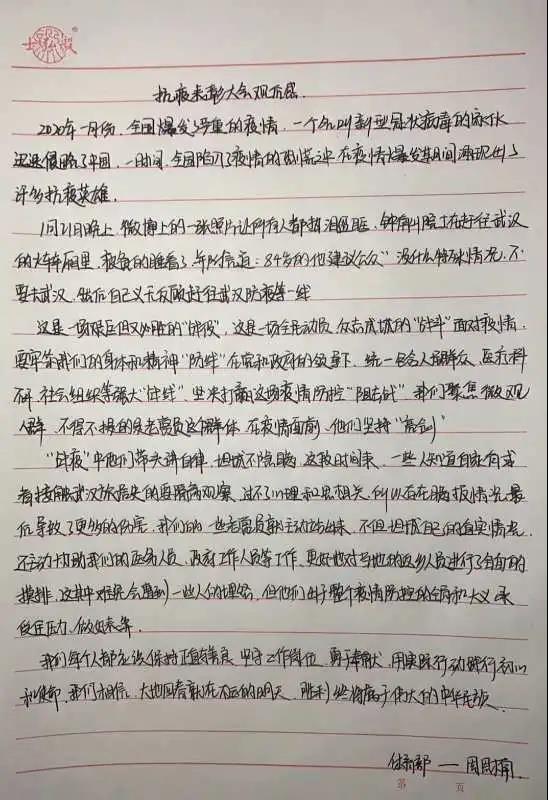 抗疫表彰大会观后感
2020年一月份,全国爆发了严重的疫情,一个名叫新型冠状病毒的家伙
迅速侵略了中国,一时间,全国陷入了疫情的恐慌之中,在疫情大爆发期间涌现出了
许多抗疫英雄。
1月21日晚上,微博上的一张照片让所有人都热泪盈眶,钟南山院士在赶往武汉
的火车厢里,疲惫的睡着了,年龄信道:84岁的他建议公众"没什么特殊情况,不
要去武汉,然后自己义无反顾赶往武汉防疫第一线
这是一场艰巨但又必胜的"战役",这是一场全民动员,众志成城的"战斗"面对疫情,
要牢筑我们的身体和精神"防线"在党和政府的领导下,统一包含人民群众、医疗科
研、社会组织等强大"战线",坚决打赢这场疫情防控"阻击战"我们聚焦微观
人群,不得不提的是老党员这个群体,在疫情面前,他们坚持"亮剑"
"战疫"中他们带头讲自律,坦诚不隐瞒,这段时间来,一些人知道自家有或
者接触武汉旅居史的要隔离观察,过不了心理和思想关,所以存在瞒报情况,最
后导致了更多的伤害,我们的一些老党员就主动站出来,不但坦报自己的真实情况,
还主动协助我们的医务人员、政府工作人员等工作,更好地对当地的返乡人员进行了全面的
摸排,这其中难免会遭到一些人的埋怨,但他们出于整个疫情防控的全局和大义,承
受住压力,做好表率。
我们每个人都应该保持正直善良,坚守工作岗位,勇于奉献,用实际行动践行初心
和使命,我们相信,大地回春就在不远的明天,胜利必将属于伟大的中华民族。
周恩楠
第 页